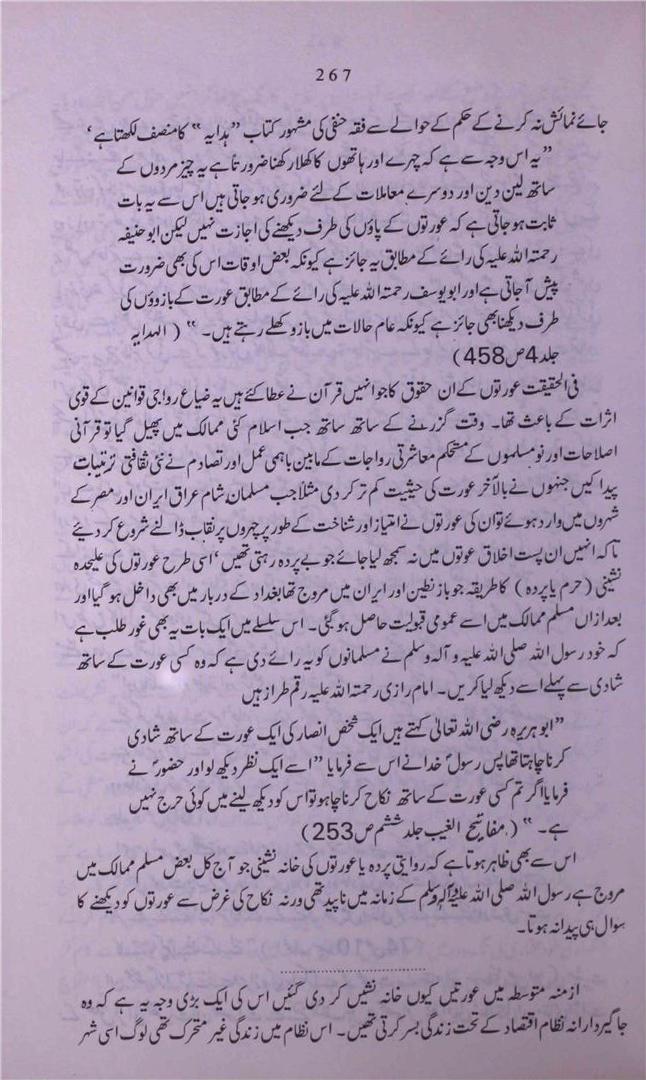 267
جائے نمائش نہ کرنے کے حکم کے حوالے سے فقہ حنفی کی مشہور کتاب "ہدایہ" کا منصف لکھتا ہے'
"یہ اس وجہ سے ہے کہ چہرے اور ہاتھوں کا کھلا رکھنا ضرورتاً ہے یہ چیز مردوں کے
ساتھ لین دین اور دوسرے معاملات کے لئے ضروری ہو جاتی ہیں اس سے یہ بات
ثابت ہو جاتی ہے کہ عورتوں کے پاؤں کی طرف دیکھنے کی اجازت نہیں لیکن ابو حنیفہ
رحمتہ اللہ علیہ کی رائے کے مطابق یہ جائز ہے کیونکہ بعض اوقات اس کی بھی ضرورت
پیش آ جاتی ہے اور ابو یوسف رحمتہ اللہ علیہ کی رائے کے مطابق عورت کے بازوؤں کی
طرف دیکھنا بھی جائز ہے کیونکہ عام حالات میں بازو کھلے رہتے ہیں۔" (الہدایہ
جلد 4 ص 458)
فی الحقیقت عورتوں کے ان حقوق کا جو انہیں قرآن نے عطا کئے ہیں یہ ضیاع رواجی قوانین کے قوی
اثرات کے باعث تھا۔ وقت گزرنے کے ساتھ ساتھ جب اسلام کئی ممالک میں پھیل گیا تو قرآنی
اصلاحات اور نو مسلموں کے مستحکم معاشرتی رواجات کے مابین باہمی عمل اور تصادم نے نئی ثقافتی ترتیبات
پیدا کیں جنہوں نے بالآخر عورت کی حیثیت کم تر کر دی مثلاً جب مسلمان شام عراق ایران اور مصر کے
شہروں میں وارد ہوئے تو ان کی عورتوں نے امتیاز اور شناخت کے طور پر چہروں پر نقاب ڈالنے شروع کر دیئے
تاکہ انہیں ان پست اخلاق عوتوں میں نہ سمجھ لیا جائے جو بے پردہ رہتی تھیں' اسی طرح عورتوں کی علیحدہ
نشینی (حرم یا پردہ) کا طریقہ جو باز نطین اور ایران میں مروج تھا بغداد کے دربار میں بھی داخل ہو گیا اور
بعد ازاں مسلم ممالک میں اسے عمومی قبولیت حاصل ہو گئی۔ اس سلسلے میں ایک بات یہ بھی غور طلب ہے
کہ خود رسول اللہ صلی اللہ علیہ و آلہ وسلم نے مسلمانوں کو یہ رائے دی ہے کہ وہ کسی عورت کے ساتھ
شادی سے پہلے اسے دیکھ لیا کریں۔ امام رازی رحمتہ اللہ علیہ رقم طراز ہیں
"ابو ہریرہ رضی اللہ تعالیٰ کہتے ہیں ایک شخص انصار کی ایک عورت کے ساتھ شادی
کرنا چاہتا تھا پس رسولؐ خدا نے اس سے فرمایا "اسے ایک نظر دیکھ لو اور حضورؐ نے
فرمایا اگر تم کسی عورت کے ساتھ نکاح کرنا چاہو تو اس کو دیکھ لینے میں کوئی حرج نہیں
ہے۔" (مفاتیح الغیب جلد ششم ص 253)
اس سے بھی ظاہر ہوتا ہے کہ روایتی پردہ یا عورتوں کی خانہ نشینی جو آج کل بعض مسلم ممالک میں
مروج ہے رسول اللہ صلی اللہ علیہ وآلہٖ وسلم کے زمانہ میں ناپید تھی ورنہ نکاح کی غرض سے عورتوں کو دیکھنے کا
سوال ہی پیدا نہ ہوتا۔
ازمنہ متوسطہ میں عورتیں کیوں خانہ نشیں کر دی گئیں اس کی ایک بڑی وجہ یہ ہے کہ وہ
جاگیردارانہ نظام اقتصاد کے تحت زندگی بسر کرتی تھیں۔ اس نظام میں زندگی غیر متحرک تھی لوگ اسی شہر